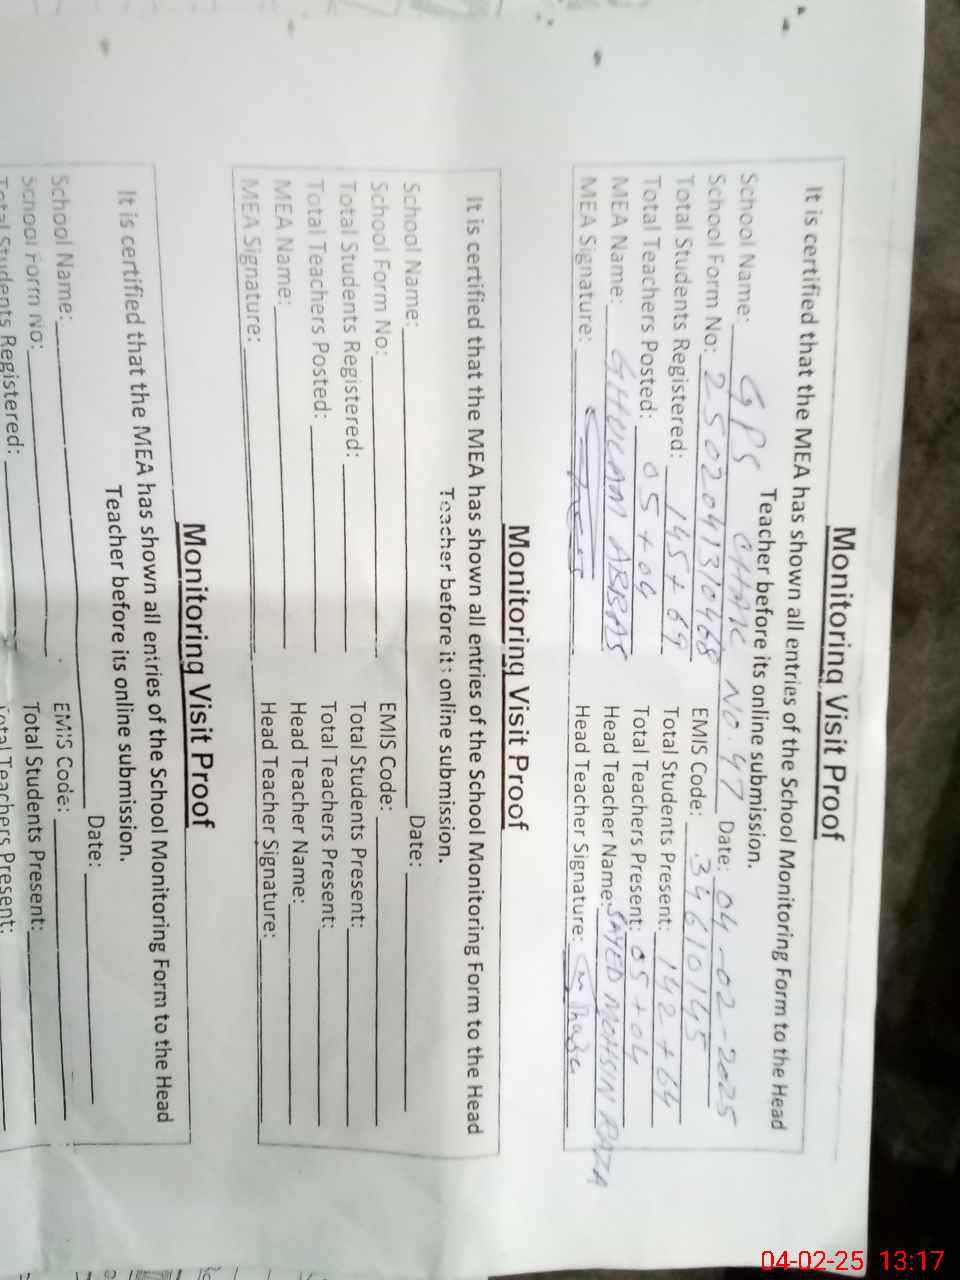 Monitoring Visit Proof
It is certified that the MEA has shown all entries of the School Monitoring Form to the Head
Teacher before its online submission.
School Name: GPS CHAK NO. 47 Date: 04-02-2025
School Form No: 2502041310468 EMIS Code: 34610145
Total Students Registered: 145+69 Total Students Present: 142+64
Total Teachers Posted: 05+04 Total Teachers Present: 05+04
MEA Name: GHULAM ABBAS Head Teacher Name: SAYED MOHSIN RAZA
MEA Signature: Head Teacher Signature:
Monitoring Visit Proof
It is certified that the MEA has shown all entries of the School Monitoring Form to the Head
Teacher before its online submission.
School Name: Date:
School Form No: EMIS Code:
Total Students Registered: Total Students Present:
Total Teachers Posted: Total Teachers Present:
MEA Name: Head Teacher Name:
MEA Signature: Head Teacher Signature:
Monitoring Visit Proof
It is certified that the MEA has shown all entries of the School Monitoring Form to the Head
Teacher before its online submission.
School Name: Date:
School Form No: EMIS Code:
Total Students Registered: Total Students Present:
Total Teachers Present:
04-02-25 13:17